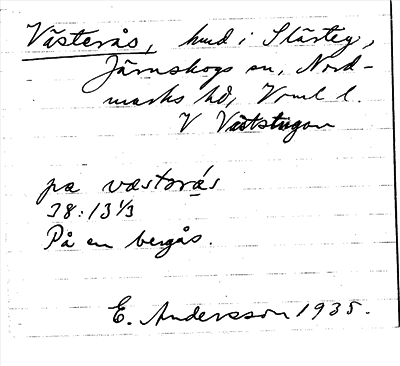 Västerås, hmd i Slärteg,
Järnskogs sn, Nord-
marks hd, Vrml l.
V Väststugan
pa væstərás
38:13 1/3
På en bergås.
E. Andersson 1935.